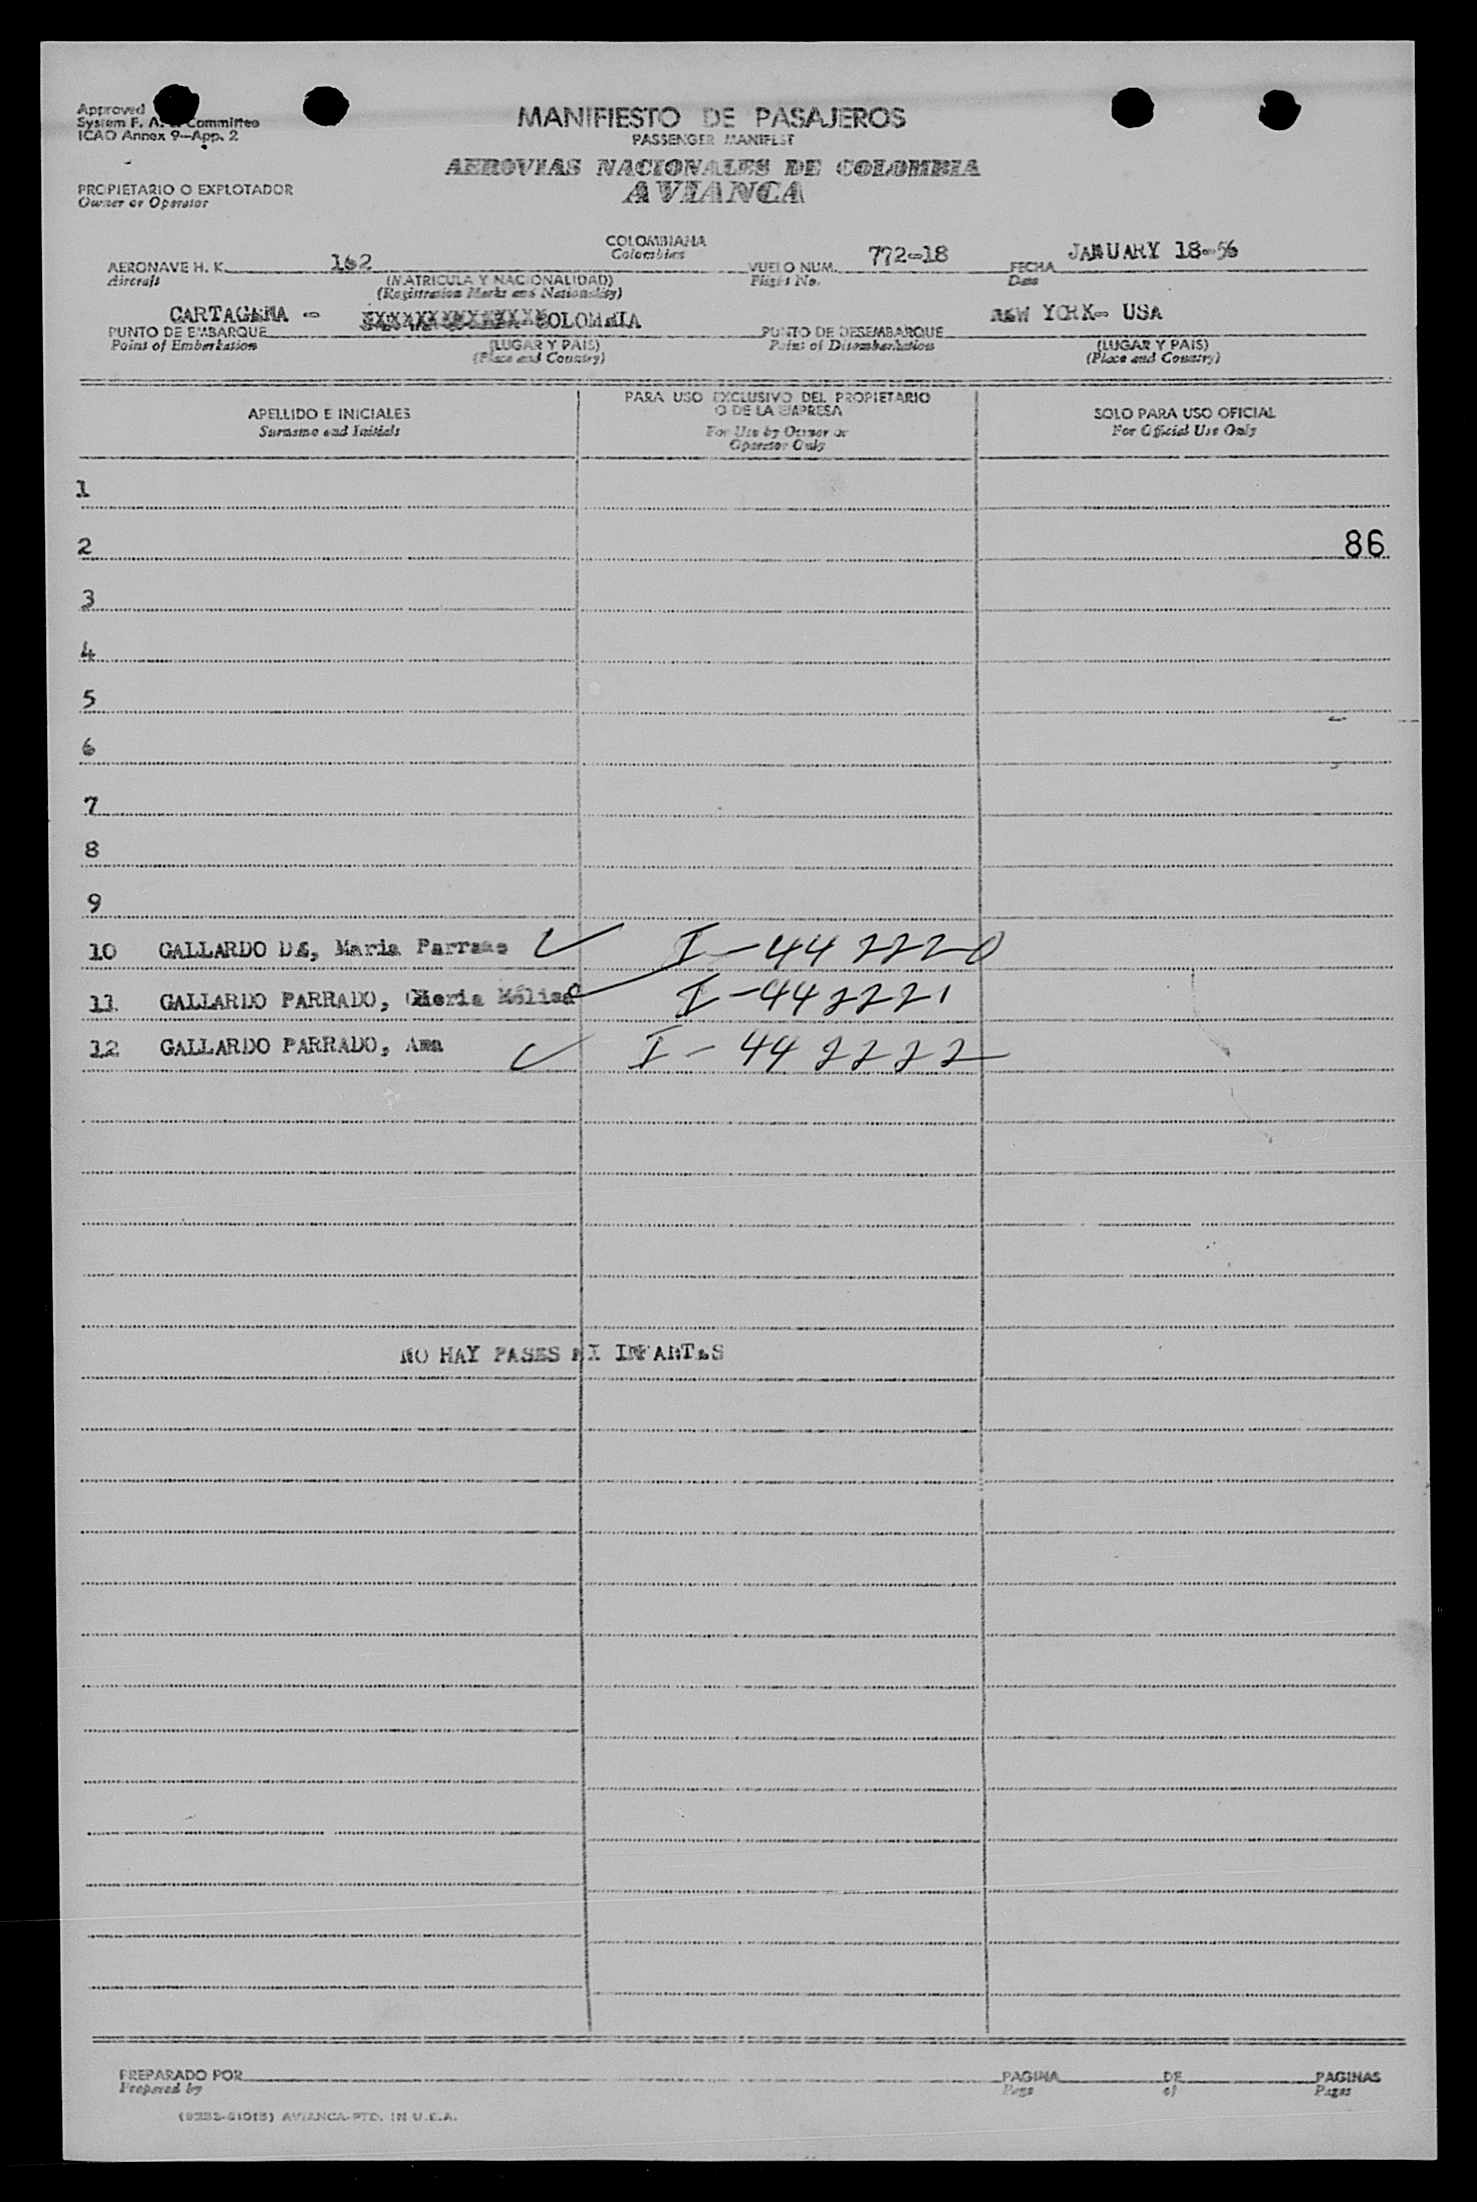 Approved
System F. A. L. Committee
ICAO Annex 9—App. 2
MANIFIESTO DE PASAJEROS
PASSENGER MANIFEST
AEROVIAS NACIONALES DE COLOMBIA
AVIANCA
PROPIETARIO O EXPLOTADOR
Owner or Operator
COLOMBIANA
Colombian
AERONAVE H. K. 162 VUELO NUM. 772-18 FECHA JANUARY 18-56
Aircraft (MATRICULA Y NACIONALIDAD) Flight No. Date
(Registration Marks and Nationality)
CARTAGENA - COLOMBIA NEW YORK- USA
PUNTO DE EMBARQUE (LUGAR Y PAIS) PUNTO DE DESEMBARQUE (LUGAR Y PAIS)
Point of Embarkation (Place and Country) Point of Disembarkation (Place and Country)
APELLIDO E INICIALES
Surname and Initials
PARA USO EXCLUSIVO DEL PROPIETARIO
O DE LA EMPRESA
For Use by Owner or
Operator Only
SOLO PARA USO OFICIAL
For Official Use Only
1
2 86
3
4
5
6
7
8
9
10 GALLARDO DE, Maria I-442220
11 GALLARDO PARRADO, I-442221
12 GALLARDO PARRADO, Ana I-442222
NO HAY PASES NI INFANTES
PREPARADO POR PAGINA DE PAGINAS
Prepared by Page of Pages
AVIANCA-PTD. IN U.S.A.